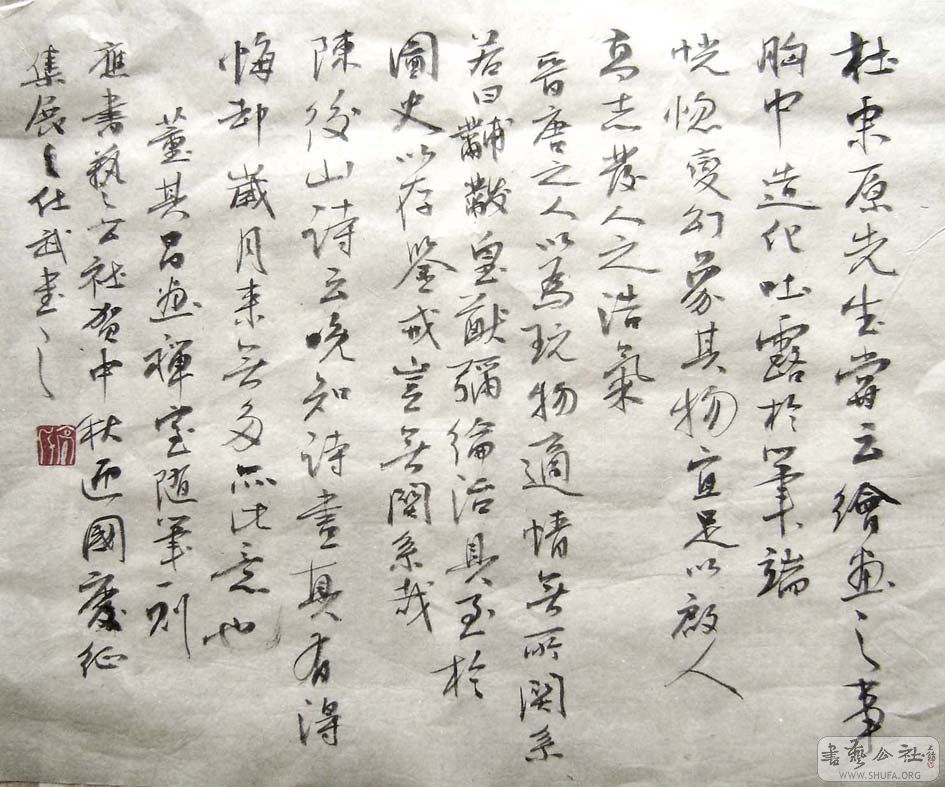 杜東原先生嘗云繪畫之事
胸中造化吐露於筆端
恍惚變幻象其物宜足以啟人
高志發人之浩氣
晉唐之人以為玩物適情無所關系
若曰黼黻皇猷彌倫治具至於
圖史以存鑒戒豈無關系哉
陳後山詩云晚知詩畫真有得
悔却歲月来無多亦此意也
董其昌畫禪室隨筆一則
應書藝公社賀中秋迎國慶征
集展之仕武書之
書藝公社
WWW.SHUFA.ORG